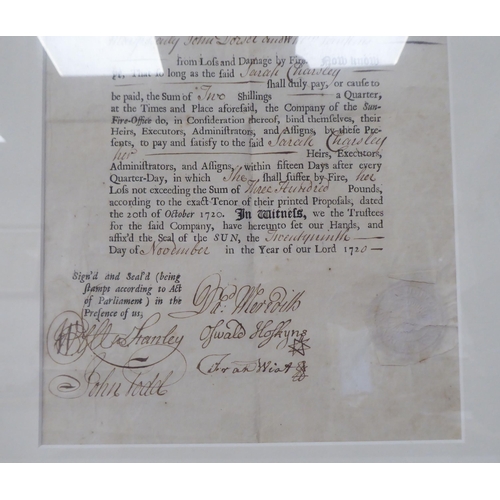 John Dorset
from Loſs and Damage by Fire. Now know
ye, That ſo long as the ſaid Sarah Charsley
ſhall duly pay, or cauſe to
be paid, the Sum of Two Shillings a Quarter,
at the Times and Place aforeſaid, the Company of the Sun-
Fire-Office do, in Conſideration thereof, bind themſelves, their
Heirs, Executors, Adminiſtrators, and Aſſigns, by theſe Pre-
ſents, to pay and ſatisfy to the ſaid Sarah Charsley
her Heirs, Executors,
Adminiſtrators, and Aſſigns, within fifteen Days after every
Quarter-Day, in which She ſhall ſuffer by Fire, her
Loſs not exceeding the Sum of Three Hundred Pounds,
according to the exact Tenor of their printed Propoſals, dated
the 20th of October 1720. In Witneſs, we the Truſtees
for the ſaid Company, have hereunto ſet our Hands, and
affix'd the Seal of the SUN, the Twentyninth
Day of November in the Year of our Lord 1720
Sign'd and Seal'd (being
ſtampt according to Act
of Parliament) in the
Preſence of us,
Meredith
Stanley
Oswald Hoskyns
Fran Wiat
John Todd